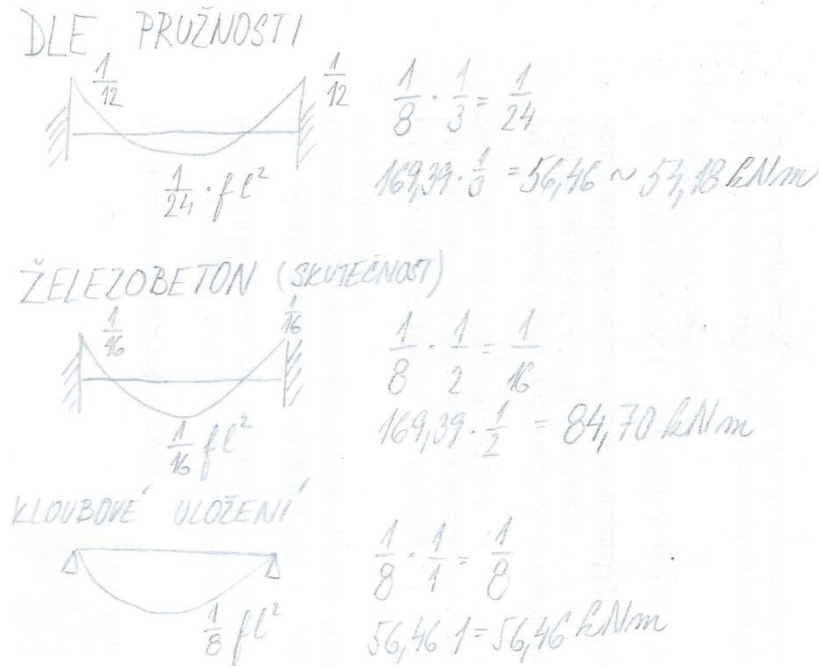 DLE PRUŽNOSTI
1/12
1/12
1/24 · fl²
1/8 · 1/3 = 1/24
169,39 · 1/3 = 56,46 ~ 54,18 kNm
ŽELEZOBETON (SKUTEČNOST)
1/16
1/16
1/16 fl²
1/8 · 1/2 = 1/16
169,39 · 1/2 = 84,70 kNm
KLOUBOVÉ ULOŽENÍ
1/8 fl²
1/8 · 1/1 = 1/8
56,46 · 1 = 56,46 kNm